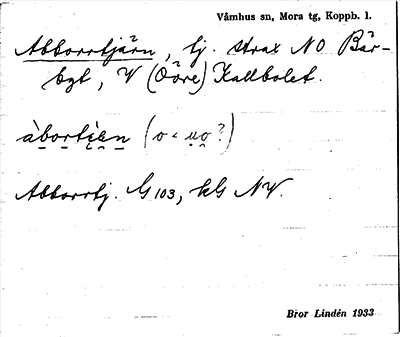 Våmhus sn, Mora tg, Koppb. l.
Abborrtjärn, tj. strax NO Bär-
bgt, V (Öore) Kallbolet.
àbortèn (o < uo?)
Abborrtj. G 103, kG NV.
Bror Lindén 1933